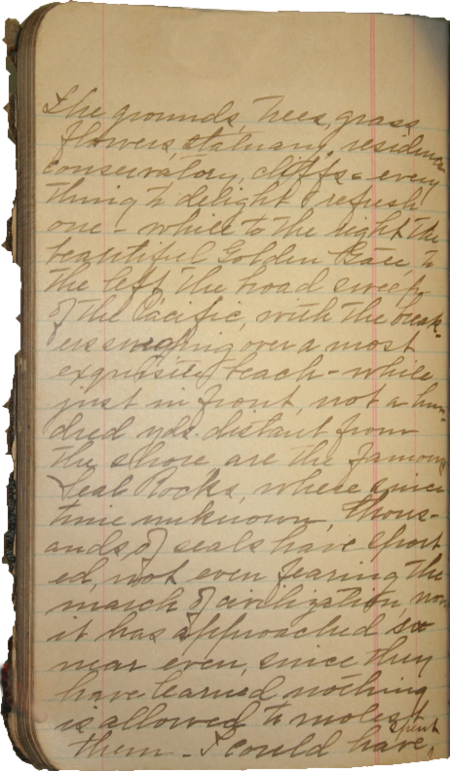 The grounds, trees, grass
flowers, statuary, residence
conservatory, cliffs - every
thing to delight & refresh
one - while to the right the
beautiful Golden Gate, to
the left the broad sweep
of the Pacific, with the break-
ers surging over a most
exquisite beach - while,
just in front, not a hun-
dred yds. distant from
the shore are the famous
Seal Rocks, where since
time unknown, thous-
ands of seals have sport
ed, not even fearing the
march of civilization, now
it has approached so
near even, since they
have learned nothing
is allowed to molest
them - I could have spent